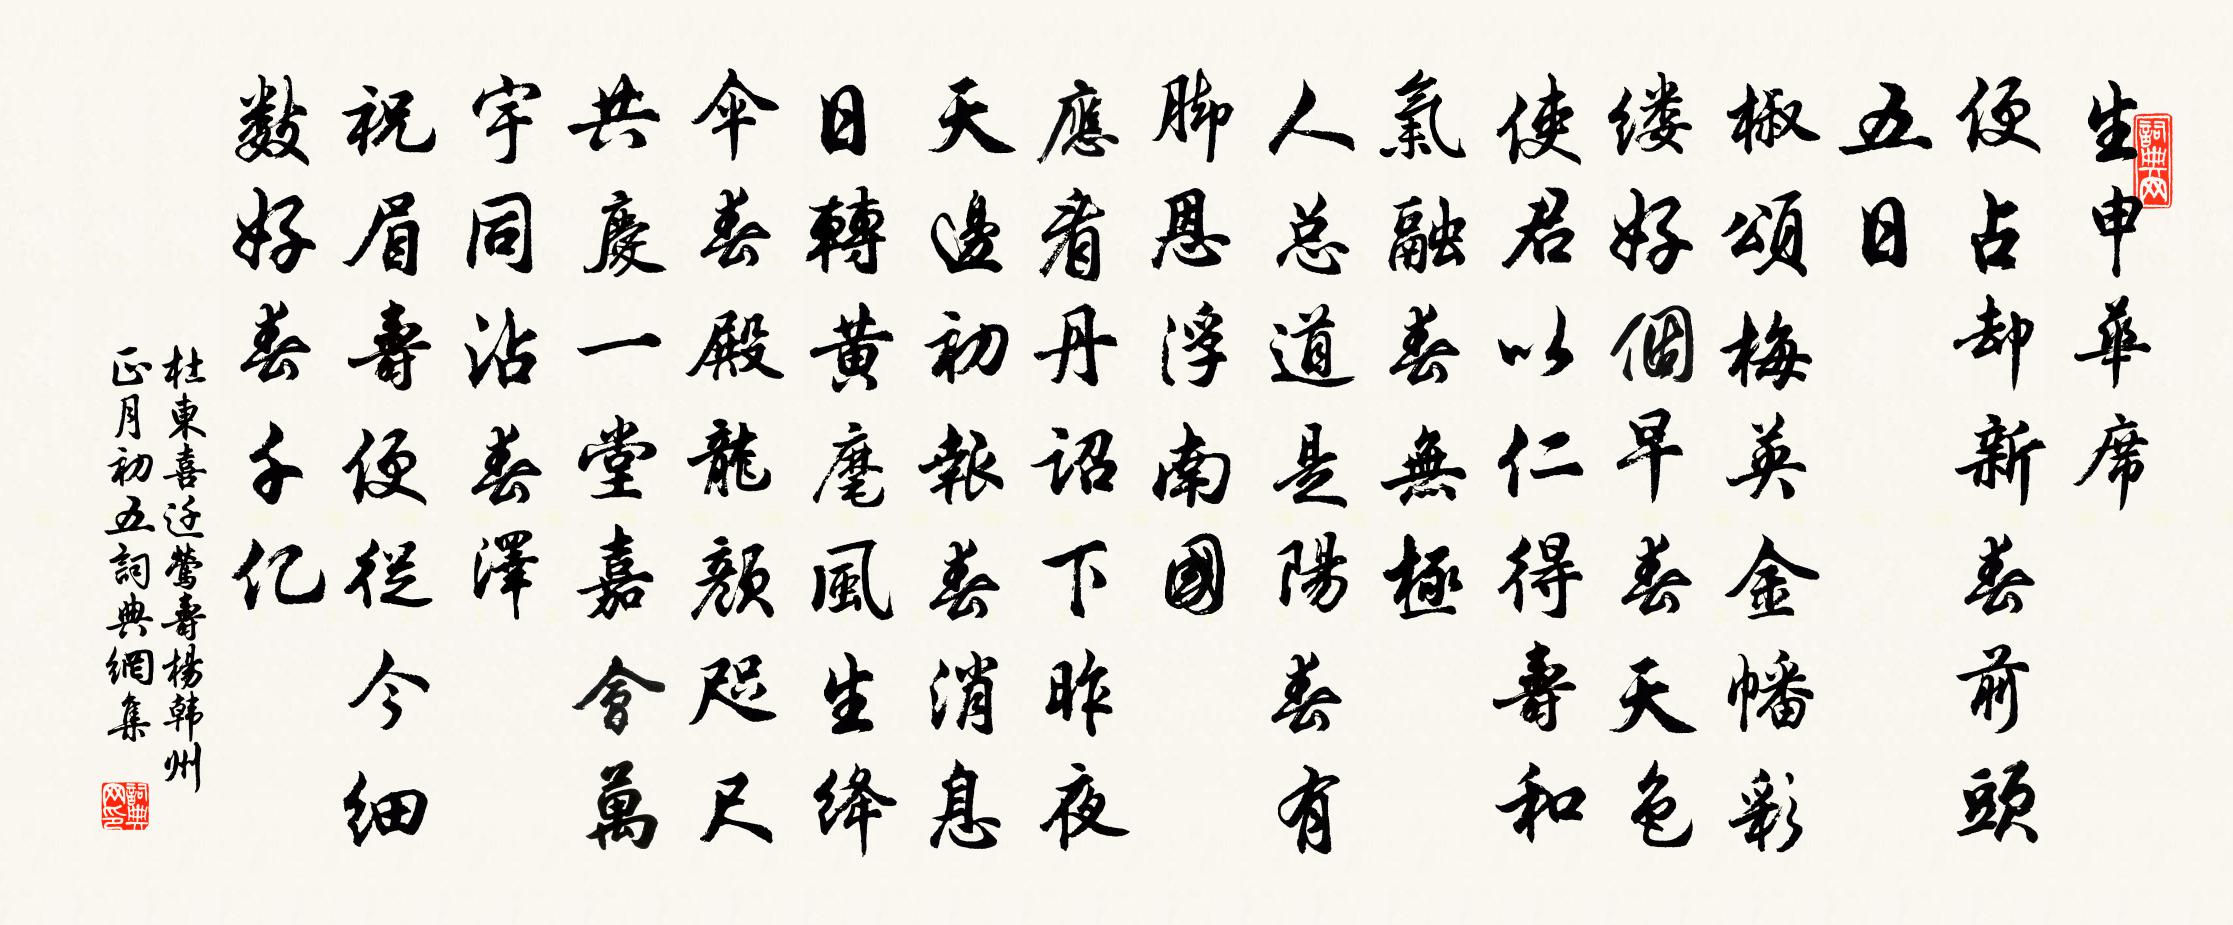 生申華席
便占却新春前頭
五日
椒頌梅英金幡彩
缕好個早春天色
使君以仁得壽和
氣融春無極
人总道是陽春有
脚恩浮南國
應看丹詔下昨夜
天邊初報春消息
日轉黄麾風生绛
伞春殿龍颜咫尺
共慶一堂嘉會萬
宇同沾春澤
祝眉壽便從今細
数好春千亿
杜東喜迁鶯壽楊韩州
正月初五詞典網集
詞典网
詞典网印